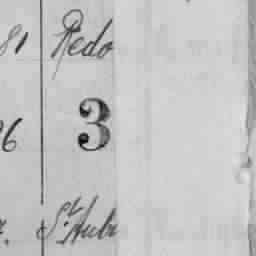 81 Redo
26 3
St. Aub